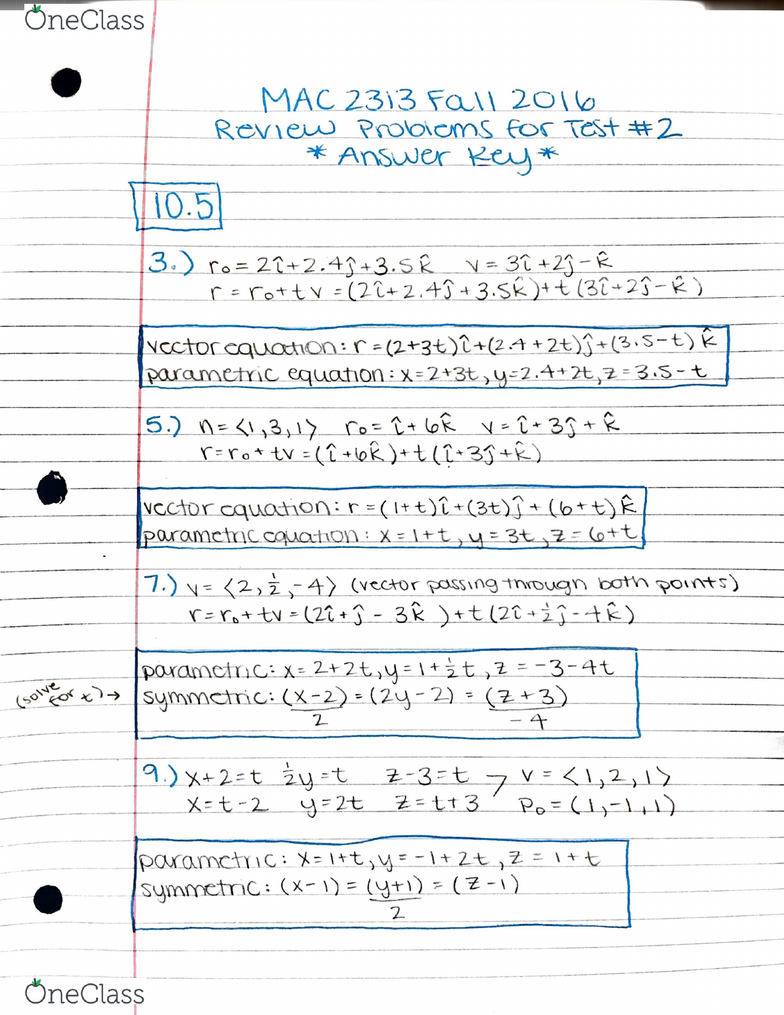 OneClass
MAC 2313 Fall 2016
Review Problems for Test #2
* Answer Key *
10.5
3.) r₀ = 2î+2.4ĵ+3.5k̂ v = 3î+2ĵ-k̂
r = r₀+tv = (2î+2.4ĵ+3.5k̂)+t(3î+2ĵ-k̂)
vector equation: r = (2+3t)î+(2.4+2t)ĵ+(3.5-t)k̂
parametric equation: x=2+3t, y=2.4+2t, z=3.5-t
5.) n = <1,3,1> r₀ = î+6k̂ v = î+3ĵ+k̂
r=r₀+tv = (î+6k̂)+t(î+3ĵ+k̂)
vector equation: r = (1+t)î+(3t)ĵ+(6+t)k̂
parametric equation: x=1+t, y=3t, z=6+t
7.) v= <2, ½, -4> (vector passing through both points)
r=r₀+tv=(2î+ĵ-3k̂)+t(2î+½ĵ-4k̂)
parametric: x=2+2t, y=1+½t, z=-3-4t
(solve for t)→ symmetric: (x-2)/2 = (2y-2) = (z+3)/-4
9.) x+2=t ½y=t z-3=t → v = <1,2,1>
x=t-2 y=2t z=t+3 P₀=(1,-1,1)
parametric: x=1+t, y=-1+2t, z=1+t
symmetric: (x-1) = (y+1)/2 = (z-1)
OneClass